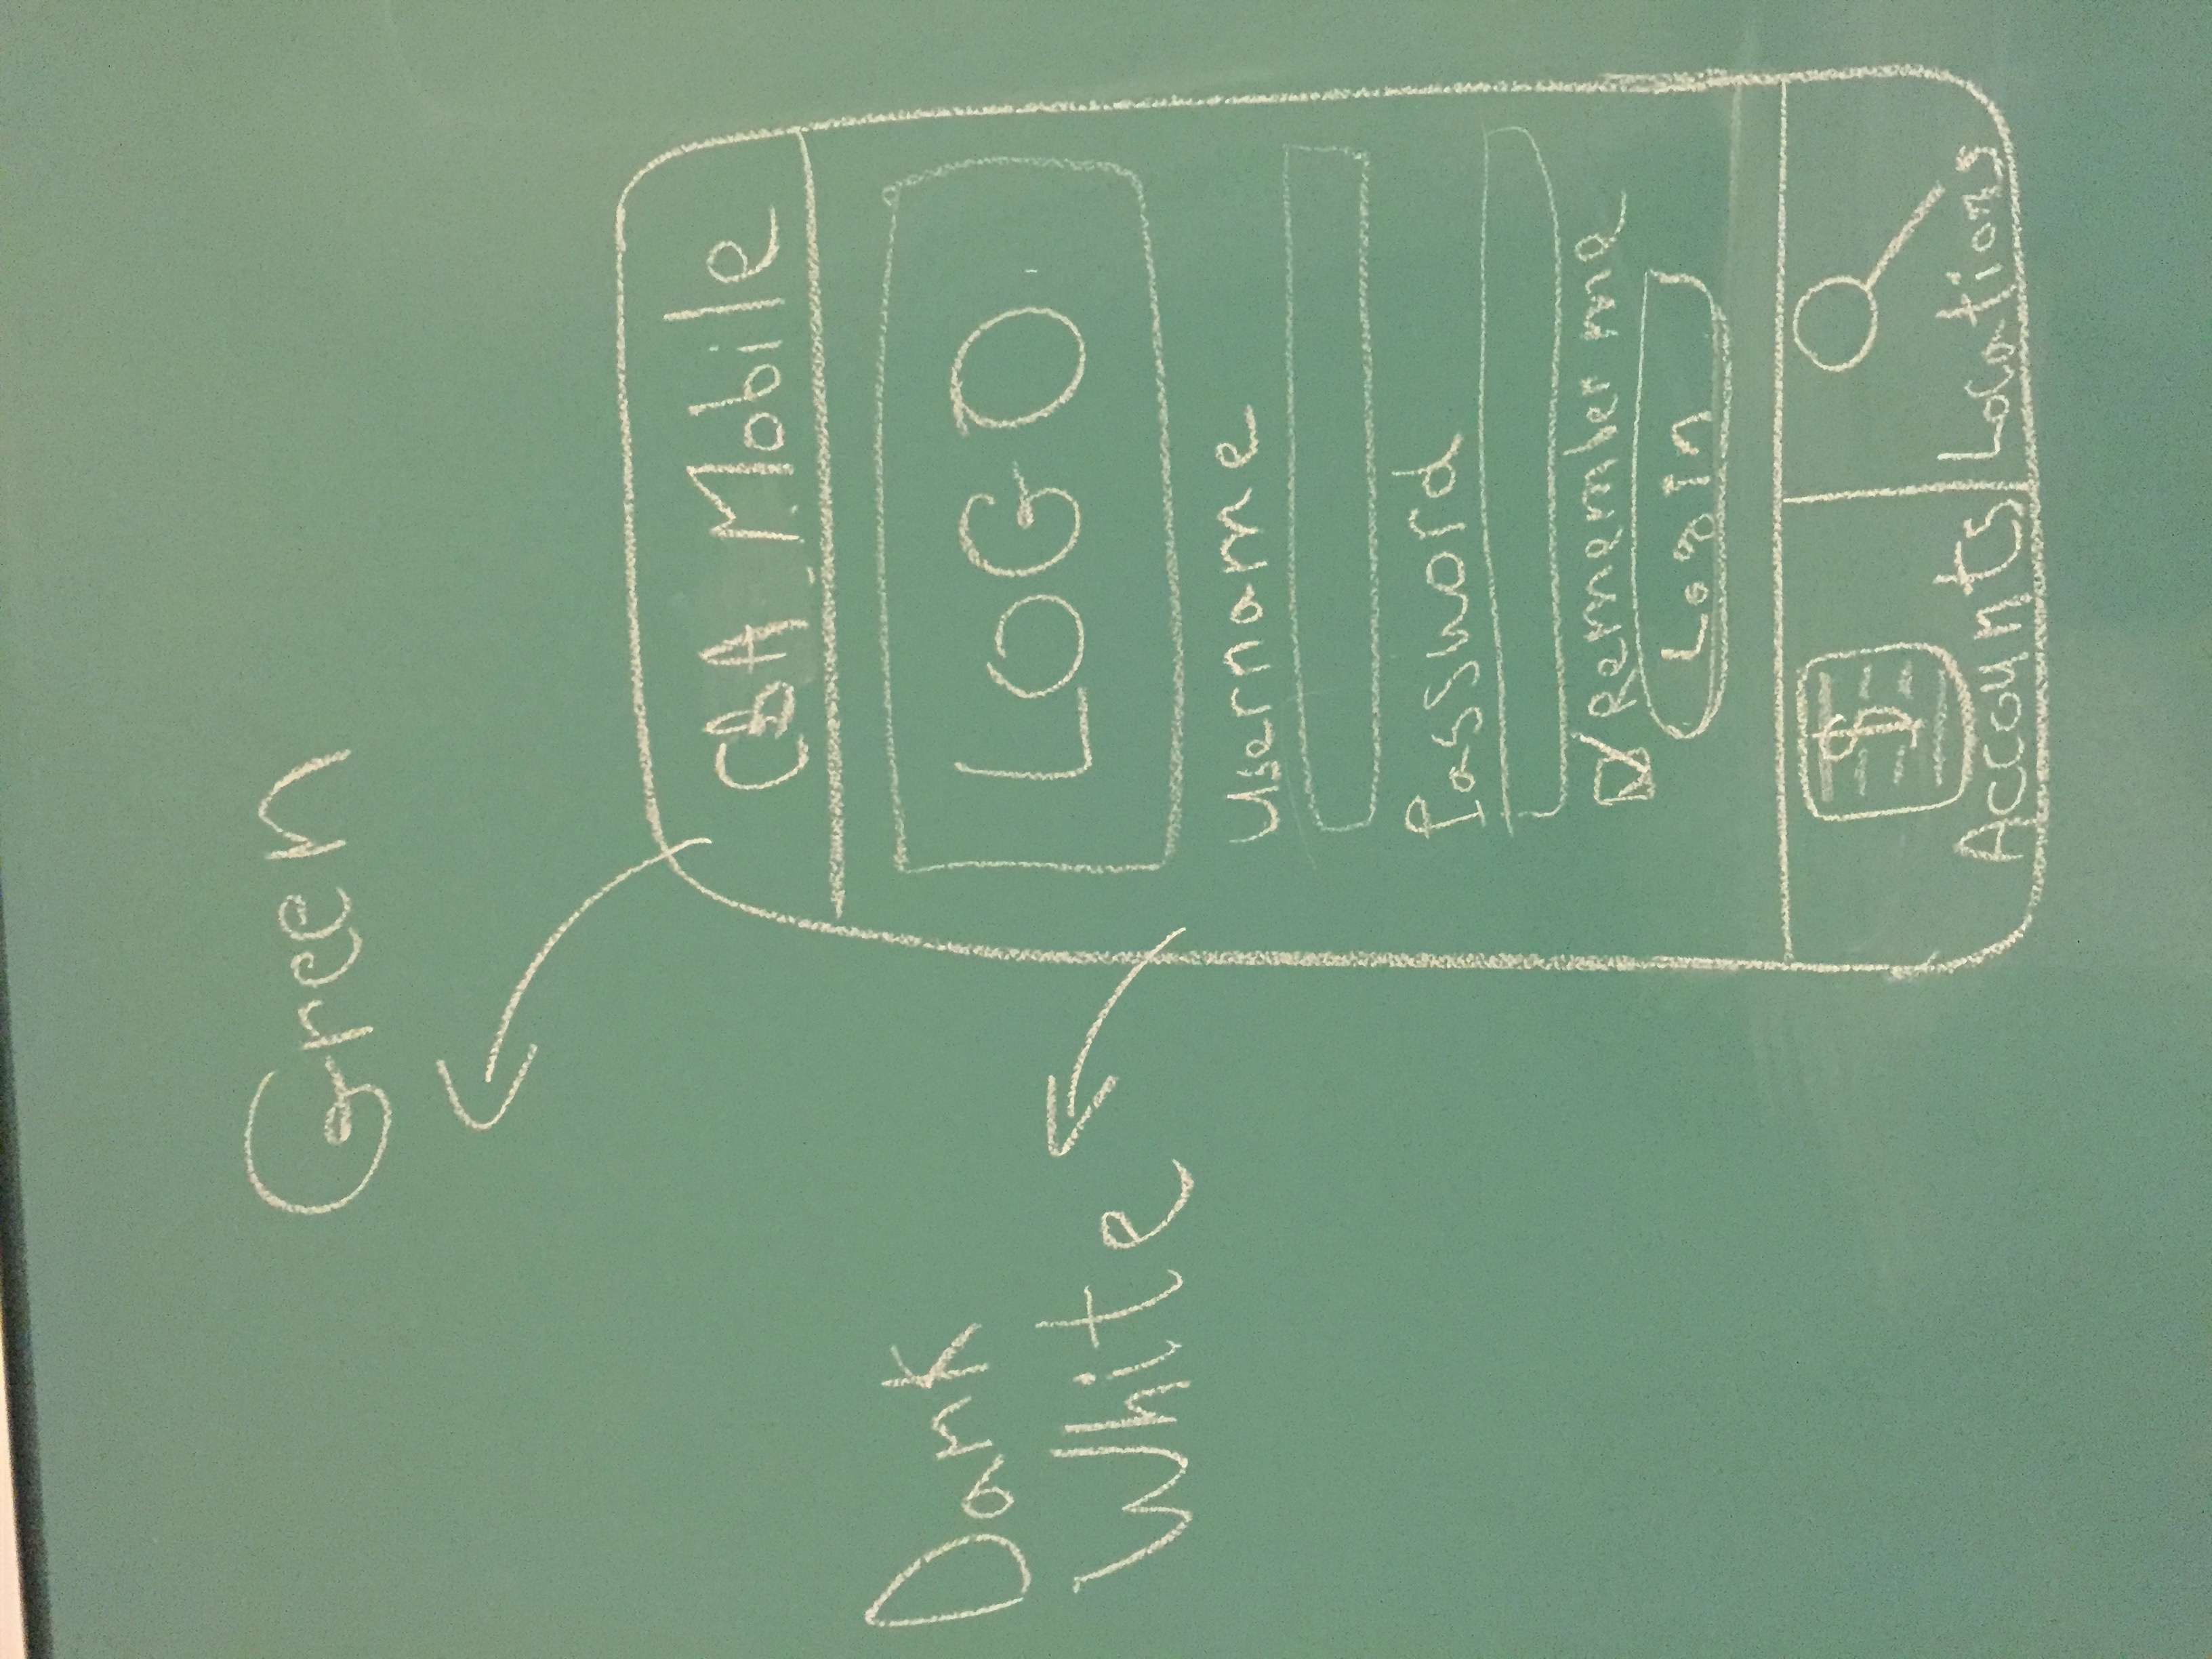 Green
CBA Mobile
Dark
White
LOGO
Username
Password
Remember me
Login
$
Accounts
Locations